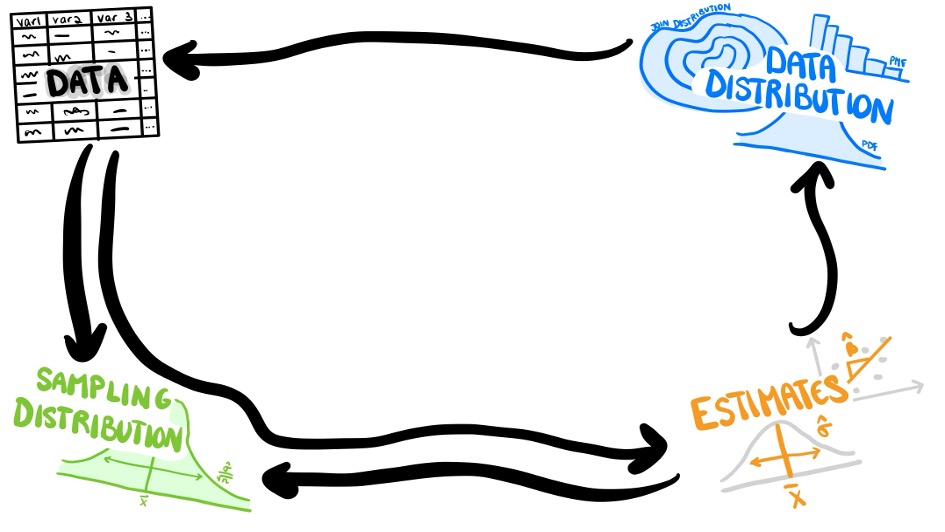 var1 var2 var 3 ...
DATA
JOIN DISTRIBUTION
PMF
DATA
DISTRIBUTION
PDF
SAMPLING
DISTRIBUTION
x̄
ESTIMATES
β̂
σ̂
x̄